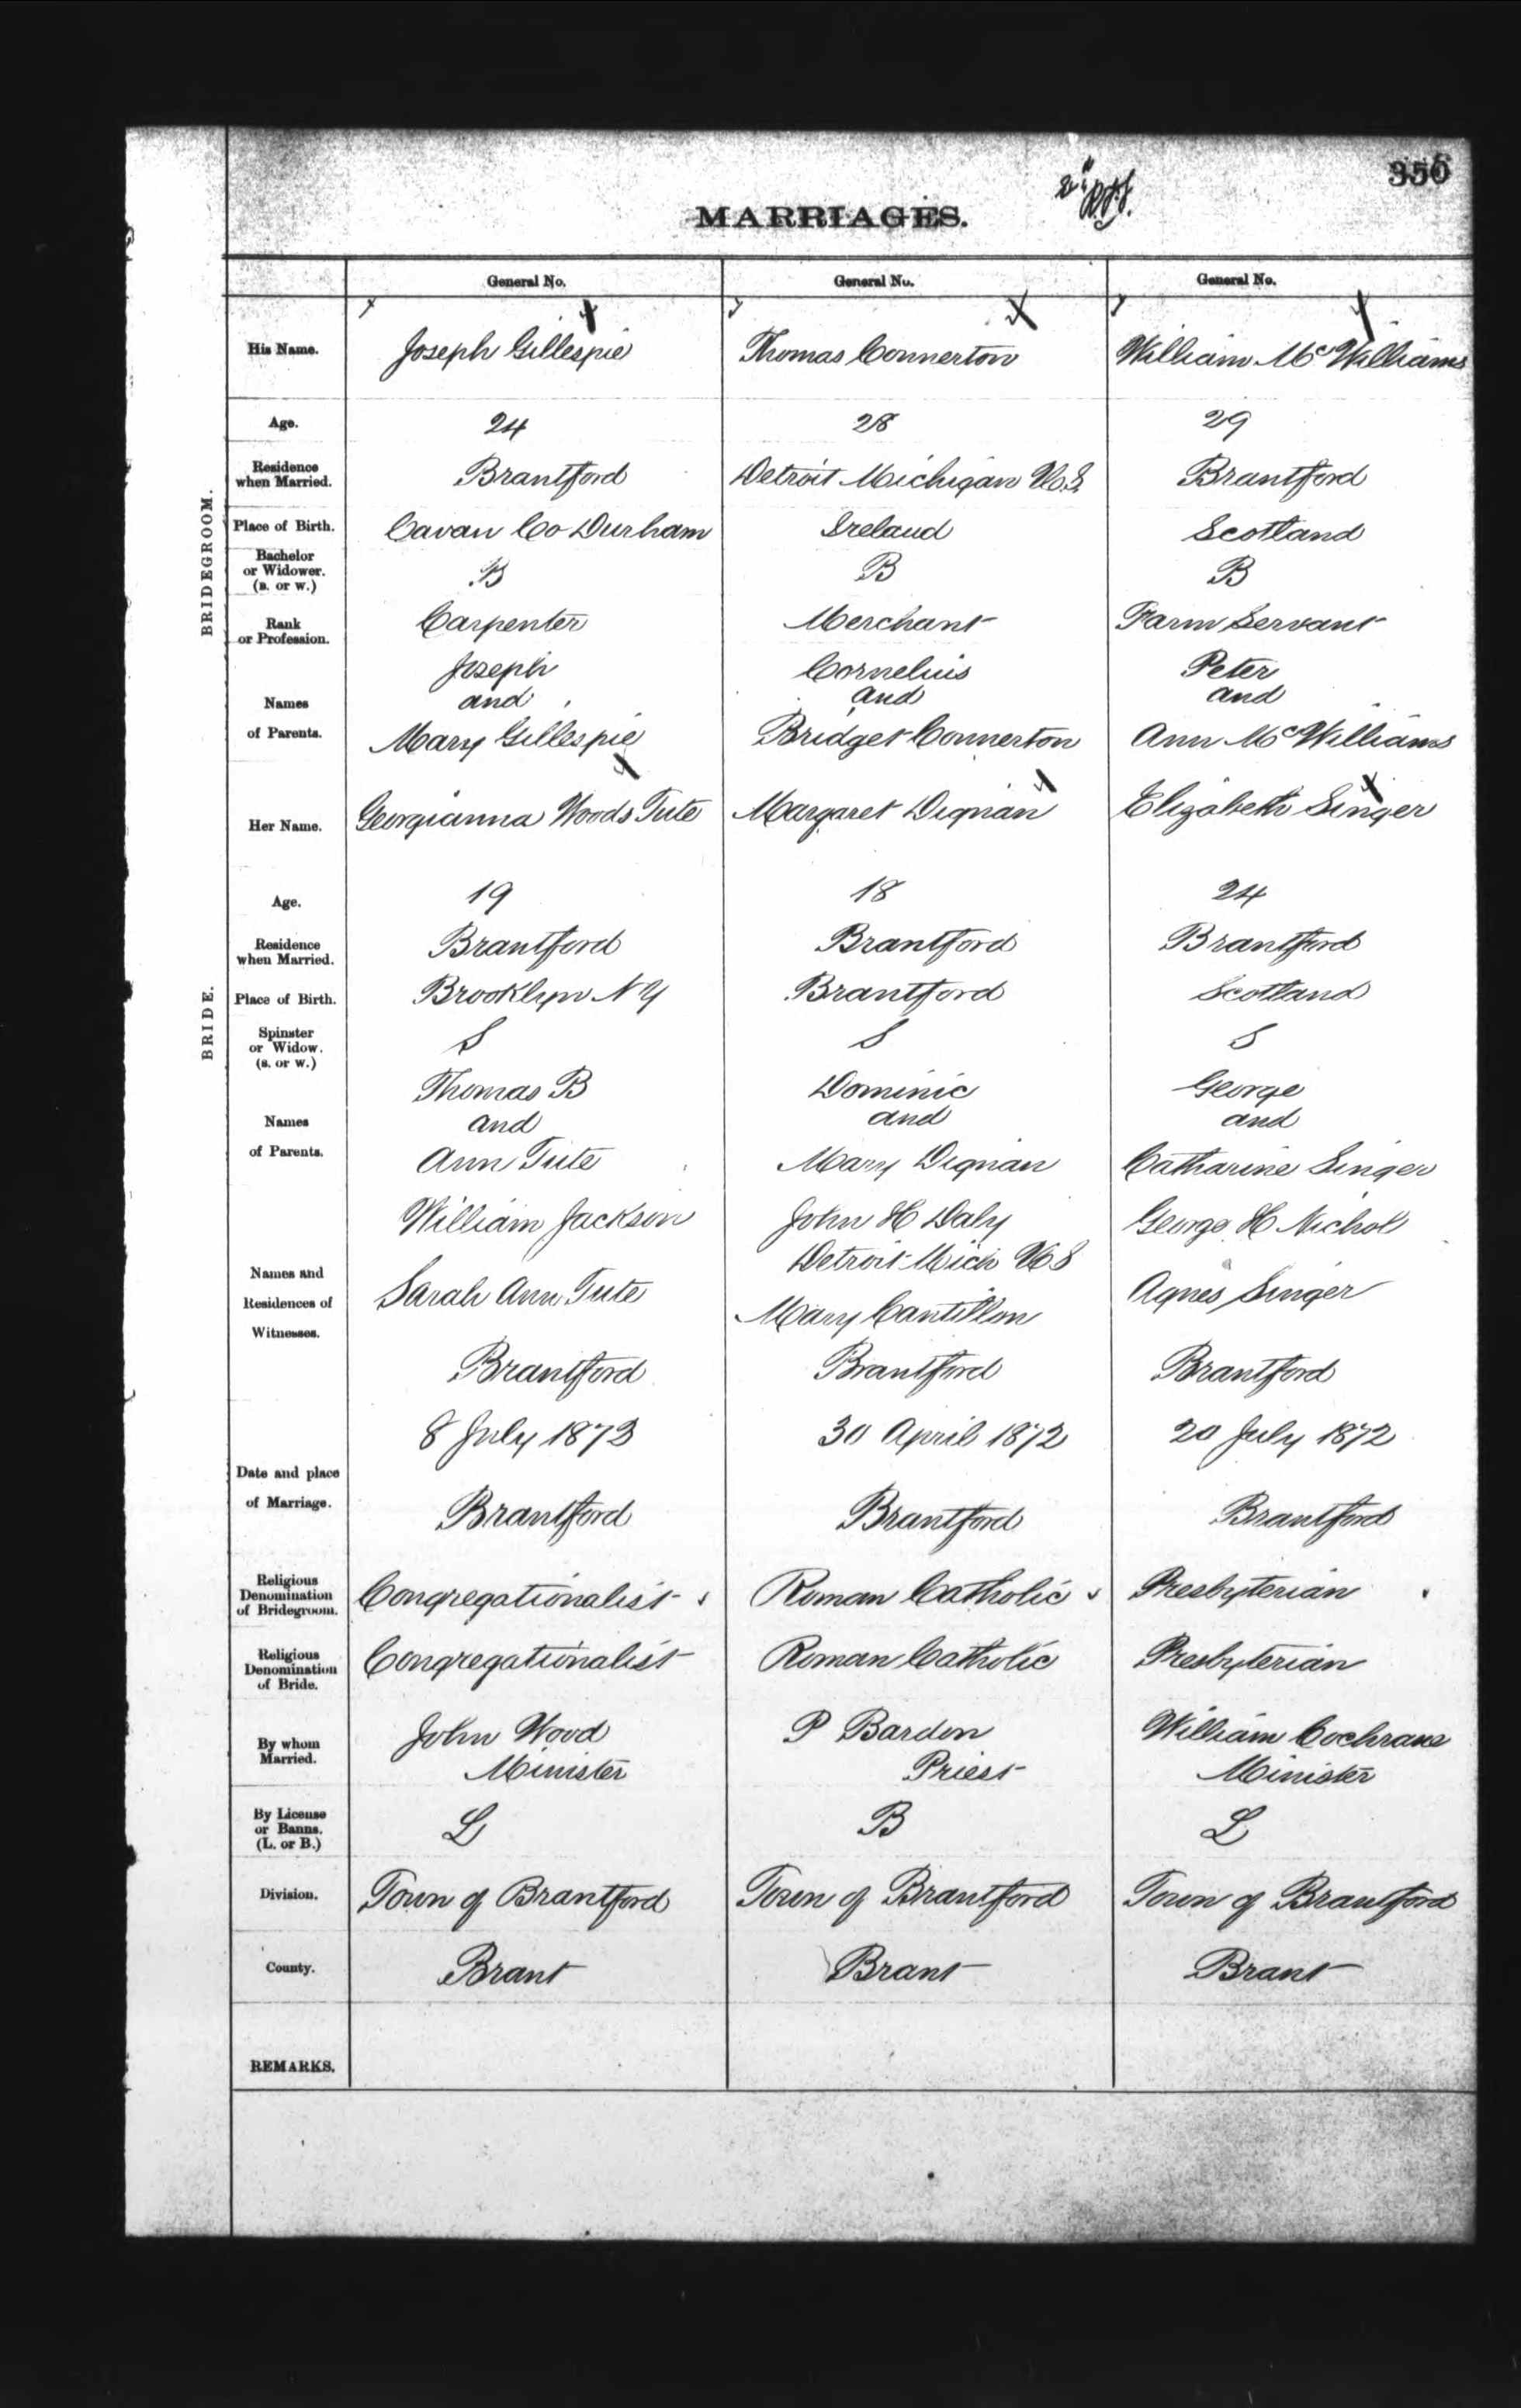 350
MARRIAGES.
General No. General No. General No.
BRIDEGROOM.
His Name. Joseph Gillespie Thomas Connerton William McWilliams
Age. 24 28 29
Residence when Married. Brantford Detroit Michigan U.S. Brantford
Place of Birth. Cavan Co Durham Ireland Scotland
Bachelor or Widower. (B. or W.) B B B
Rank or Profession. Carpenter Merchant Farm Servant
Joseph Cornelius Peter
Names and and and
of Parents. Mary Gillespie Bridget Connerton Ann McWilliams
BRIDE.
Her Name. Georgianna Woods Tute Margaret Dignan Elizabeth Singer
Age. 19 18 24
Residence when Married. Brantford Brantford Brantford
Place of Birth. Brooklyn N Y Brantford Scotland
Spinster or Widow. (S. or W.) S S S
Thomas B Dominic George
Names and and and
of Parents. Ann Tute Mary Dignan Catharine Singer
William Jackson John H Daly George H Nichol
Detroit Mich U S
Names and Residences of Witnesses. Sarah Ann Tute Mary Cantillon Agnes Singer
Brantford Brantford Brantford
8 July 1873 30 April 1872 20 July 1872
Date and place of Marriage.
Brantford Brantford Brantford
Religious Denomination of Bridegroom. Congregationalist Roman Catholic Presbyterian
Religious Denomination of Bride. Congregationalist Roman Catholic Presbyterian
By whom Married. John Wood P Bardon William Cochrane
Minister Priest Minister
By License or Banns. (L. or B.) L B L
Division. Town of Brantford Town of Brantford Town of Brantford
County. Brant Brant Brant
REMARKS.